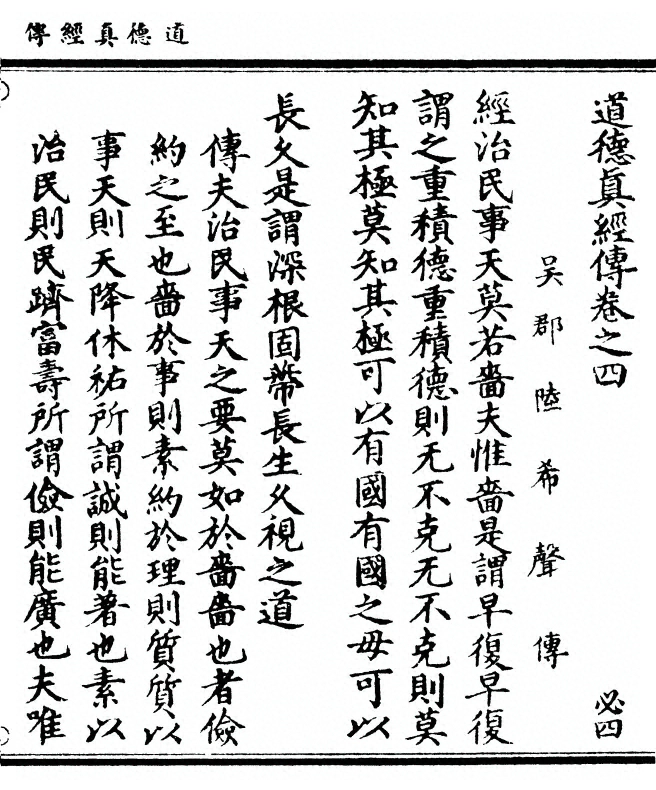 道德真經傳
道德眞經傳卷之四
必四
吴郡陸希聲傳
經治民事天莫若嗇夫惟嗇是謂早復早復
謂之重積德重積德則无不克无不克則莫
知其極莫知其極可以有國有國之毋可以
長久是謂深根固蔕長生久視之道
傳夫治民事天之要莫如於嗇嗇也者儉
約之至也嗇於事則素約於理則質質以
事天則天降休祐所謂誠則能著也素以
治民則民躋富壽所謂儉則能廣也夫唯